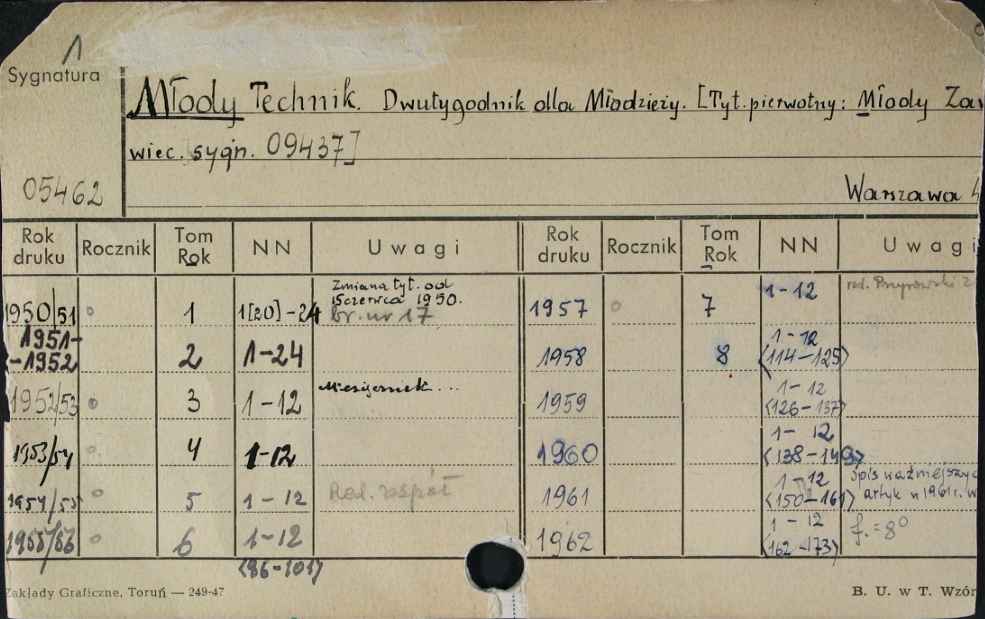 1
Sygnatura
Młody Technik. Dwutygodnik dla Młodzieży. [Tyt. pierwotny: Młody Zaw
wiec. sygn. 09437]
05462
Warszawa 4
Rok druku Rocznik Tom Rok NN Uwagi Rok druku Rocznik Tom Rok NN Uwagi
1950/51 1 1[20]-24 Zmiana tyt. od 15 czerwca 1950. br. nr 17 1957 7 1-12 red. Przyrowski
1951-1952 2 1-24 1958 8 1-12 (114-125)
1952/53 3 1-12 Miesięcznik... 1959 1-12 (126-137)
1953/54 4 1-12 1960 1-12 (138-149)
1954/55 5 1-12 Red. zespół 1961 1-12 (150-161) Spis ważniejszyc artyk w 1961 r. w
1955/56 6 1-12 (86-101) 1962 1-12 (162-173) f. = 8°
Zakłady Graficzne, Toruń — 249-47
B. U. w T. Wzór